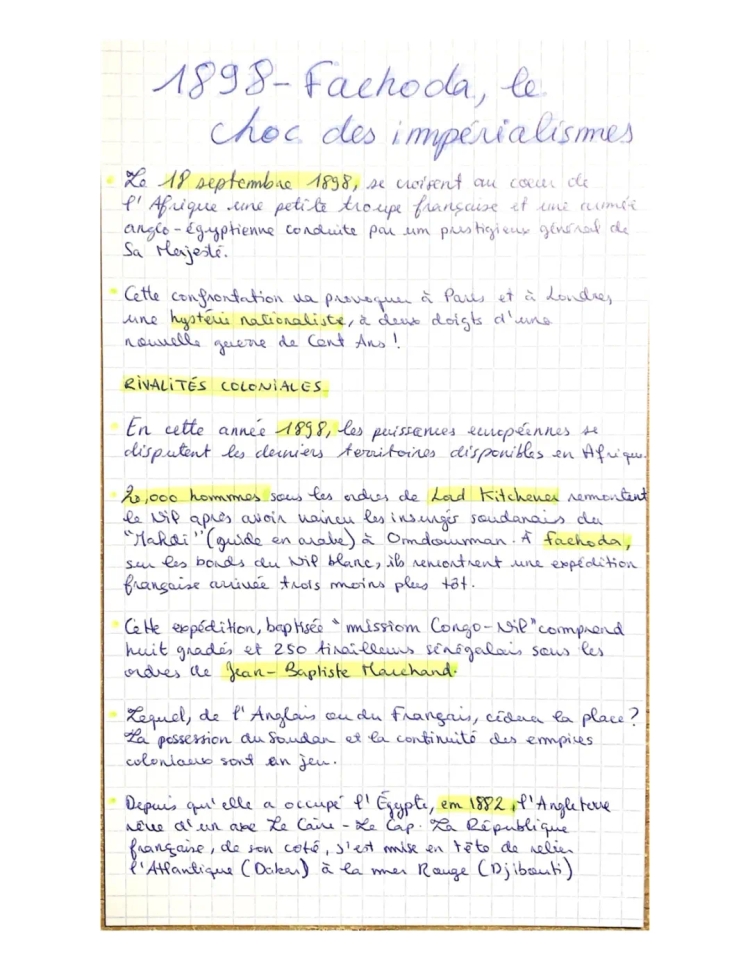 1898 - Fachoda, le
choc des impérialismes
Le 18 septembre 1898, se croisent au coeur de
l'Afrique une petite troupe française et une armée
anglo-égyptienne conduite par un prestigieux général de
Sa Majesté.
Cette confrontation va provoquer à Paris et à Londres
une hystérie nationaliste, à deux doigts d'une
nouvelle guerre de Cent Ans !
RIVALITÉS COLONIALES
En cette année 1898, les puissances européennes se
disputent les derniers territoires disponibles en Afrique.
20,000 hommmes sous les ordres de Lord Kitchener remontent
le Nil après avoir vaincu les insurgés soudanais du
"Mahdi" (guide en arabe) à Omdourman. À Fachoda,
sur les bords du Nil blanc, ils rencontrent une expédition
française arrivée trois moins plus tôt.
Cette expédition, baptisée "mission Congo-Nil" comprend
huit gradés et 250 tirailleurs sénégalais sous les
ordres de Jean-Baptiste Marchand.
Lequel, de l'Anglais ou du Français, cédera la place ?
La possession du Soudan et la continuité des empires
coloniaux sont en jeu.
Depuis qu'elle a occupé l'Égypte, en 1882, l'Angleterre
rêve d'un axe Le Caire - Le Cap. La République
française, de son coté, s'est mise en tête de relier
l'Atlantique (Dakar) à la mer Rouge (Djibouti)